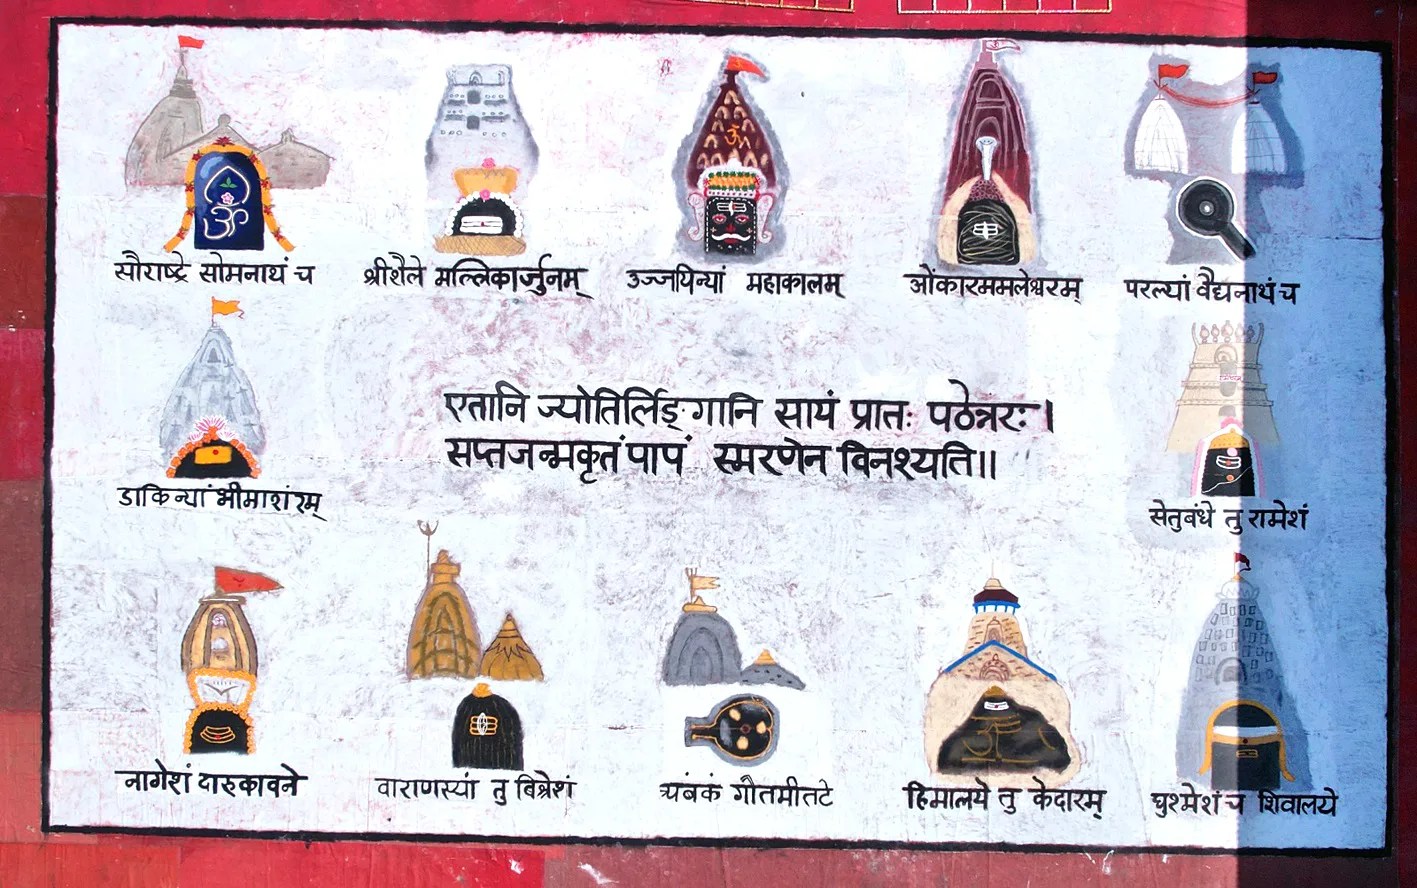 सौराष्ट्रे सोमनाथं च
श्रीशैले मल्लिकार्जुनम्
उज्जयिन्यां महाकालम्
ओंकारममलेश्वरम्
परल्यां वैद्यनाथं च
डाकिन्यां भीमाशंरम्
एतानि ज्योतिर्लिङ्गानि सायं प्रातः पठेन्नरः।
सप्तजन्मकृतं पापं स्मरणेन विनश्यति॥
सेतुबंधे तु रामेशं
नागेशं दारुकावने
वाराणस्यां तु विश्वेशं
त्र्यंबकं गौतमीतटे
हिमालये तु केदारम्
घुश्मेशं च शिवालये